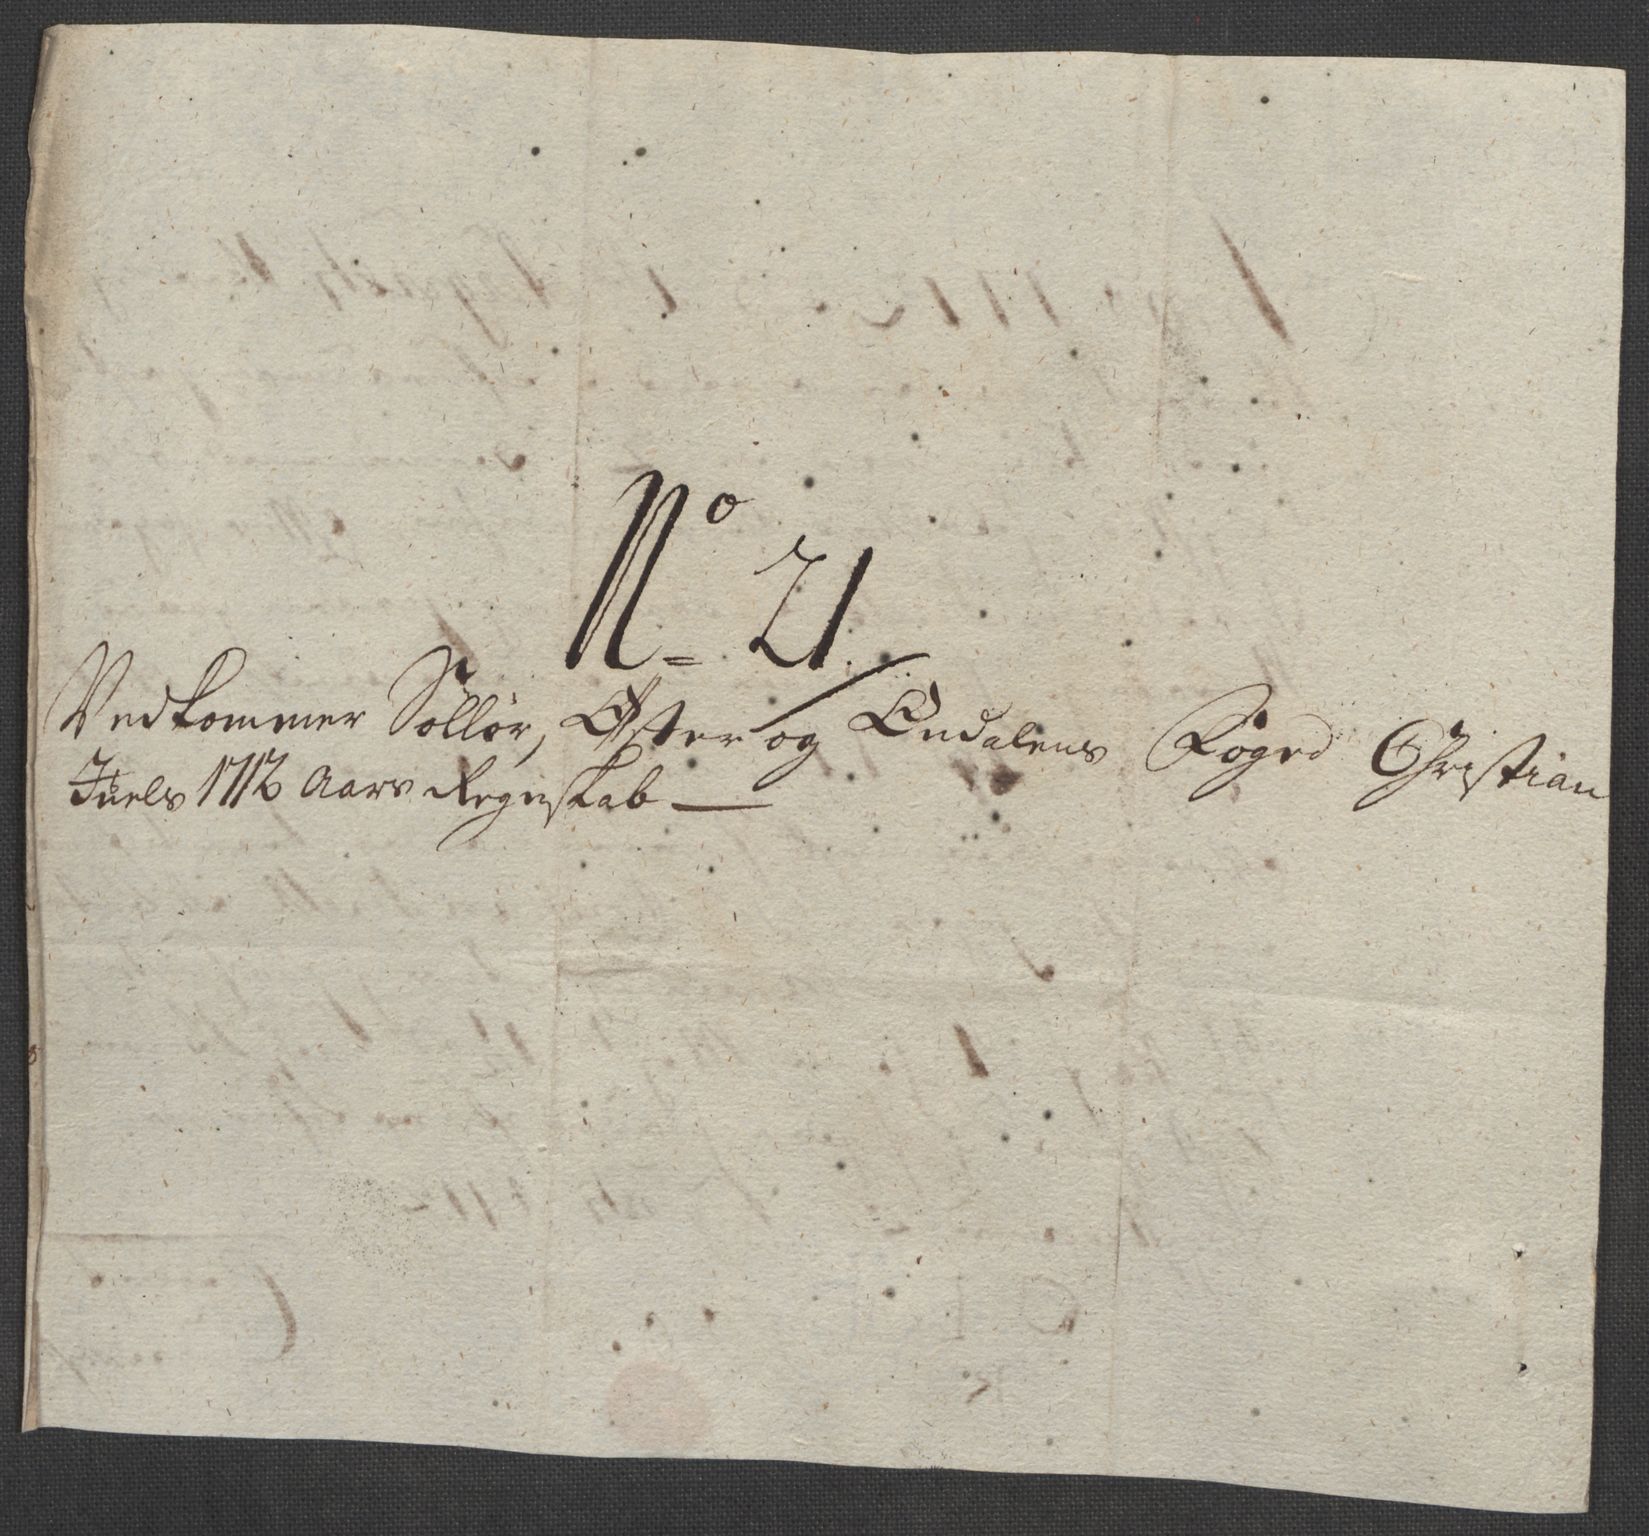 No 21.
Vedkommer Sollør, Øster og Oudalens Foged Christian
Juels 1712 Aars Regnskab